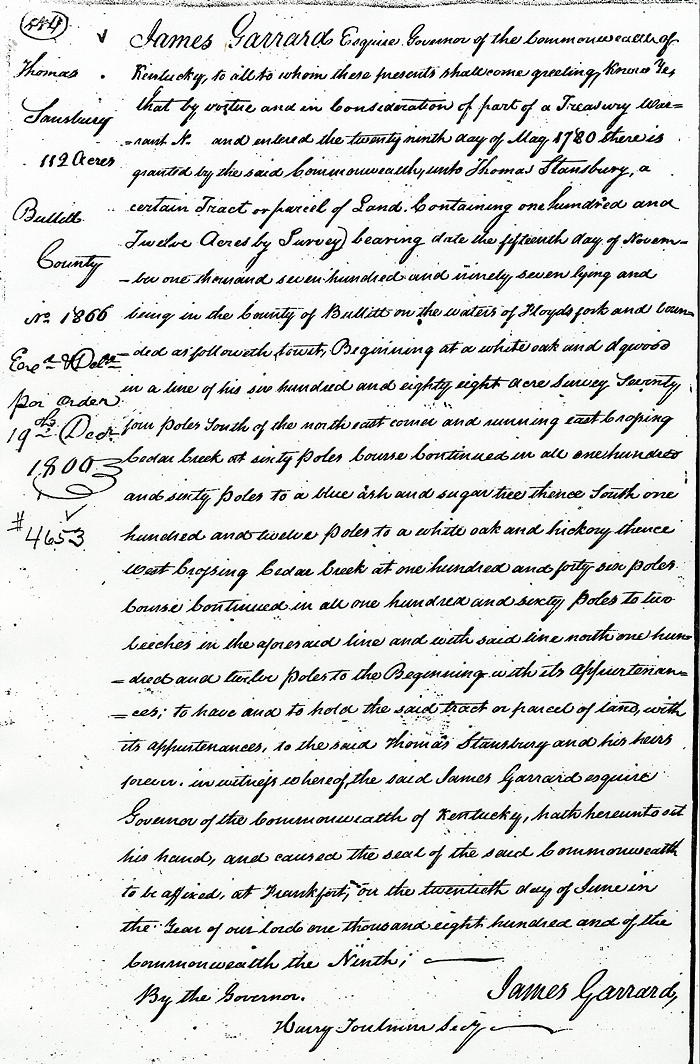 554
Thomas
Sansbury
112 Acres
Bullitt
County
No. 1866
Exed. & Deld.
por order
19th Decr.
1800
#4653
James Garrard Esquire Governor of the Commonwealth of
Kentucky, to all to whom these presents shall come greeting, Know Ye
that by vortue and in Consideration of part of a Treasury War=
=rant No. and entered the twenty ninth day of May 1780 there is
granted by the said Commonwealth, unto Thomas Stansbury, a
certain Tract or parcel of Land. Containing one hundred and
Twelve Acres by Survey) bearing date the fifteenth day of Novem=
=ber one thousand seven hundred and ninety seven lying and
being in the County of Bullitt on the waters of Floyds fork and boun=
=ded as followeth, towit, Beginning at a white oak and dgwood
in a line of his six hundred and eighty eight acre Survey Seventy
four poles South of the north east corner and running east Crossing
Cedar Creek at sixty poles Course Continued in all one hundred
and sixty poles to a blue ash and sugar tree thence South one
hundred and twelve poles to a white oak and hickory thence
West Crossing Cedar Creek at one hundred and forty six poles
Course Continued in all one hundred and sixty poles to two
beeches in the aforesaid line and with said line north one hun=
=dred and twelve poles to the Beginning with its Appurtenan=
=ces; to have and to hold the said tract or parcel of land, with
its appurtenances, to the said Thomas Stansbury and his heirs
forever. in witness whereof, the said James Garrard esquire
Governor of the Commonwealth of Kentucky, hath hereunto set
his hand, and caused the seal of the said Commonwealth
to be affixed, at Frankfort, on the twentieth day of June in
the Year of our lord one thousand eight hundred and of the
Commonwealth the Ninth;
By the Governor. James Garrard,
Harry Toulmin Secy